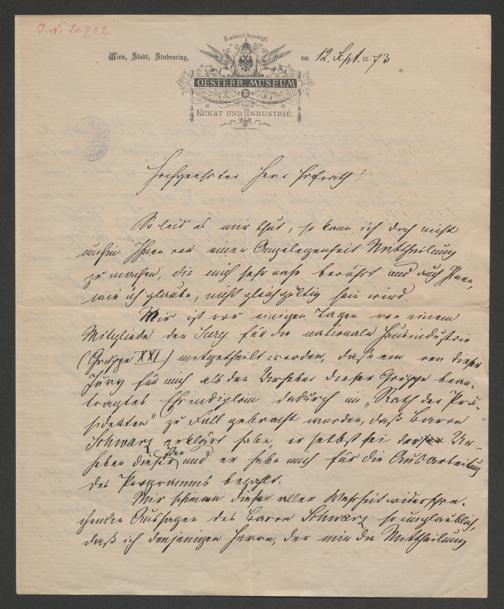 J. N. 20.702
Kaiserl. koenigl.
Wien, Stadt, Stubenring, am 12. Sept. 1873
OESTERR. MUSEUM
FÜR
KUNST UND INDUSTRIE.
Hochgeehrter Herr Hofrath!
So leid es mir thut, so kann ich doch nicht
umhin Ihnen von einer Angelegenheit Mittheilung
zu machen, die mich sehr nahe berührt und auch Ihnen,
wie ich glaube, nicht gleichgültig sein wird.
Mir ist vor einigen Tagen von einem
Mitgliede der Jury für die nationale Hausindustrie
(Gruppe XXI) mitgetheilt worden, daß ein von dieser
Jury für mich als den Urheber dieser Gruppe bean-
tragtes Ehrendiplom dadurch im „Rath der Prä-
sidenten“ zu Fall gebracht worden, daß Baron
Schwarz erklärt habe, er selbst sei der Ur-
heber dieser Idee und er habe mich für die Ausarbeitung
des Programms bezahlt.
Mir schienen diese aller Wahrheit widerspre-
chenden Aussagen des Baron Schwarz so unglaublich,
daß ich denjenigen Herrn, der mir die Mittheilung